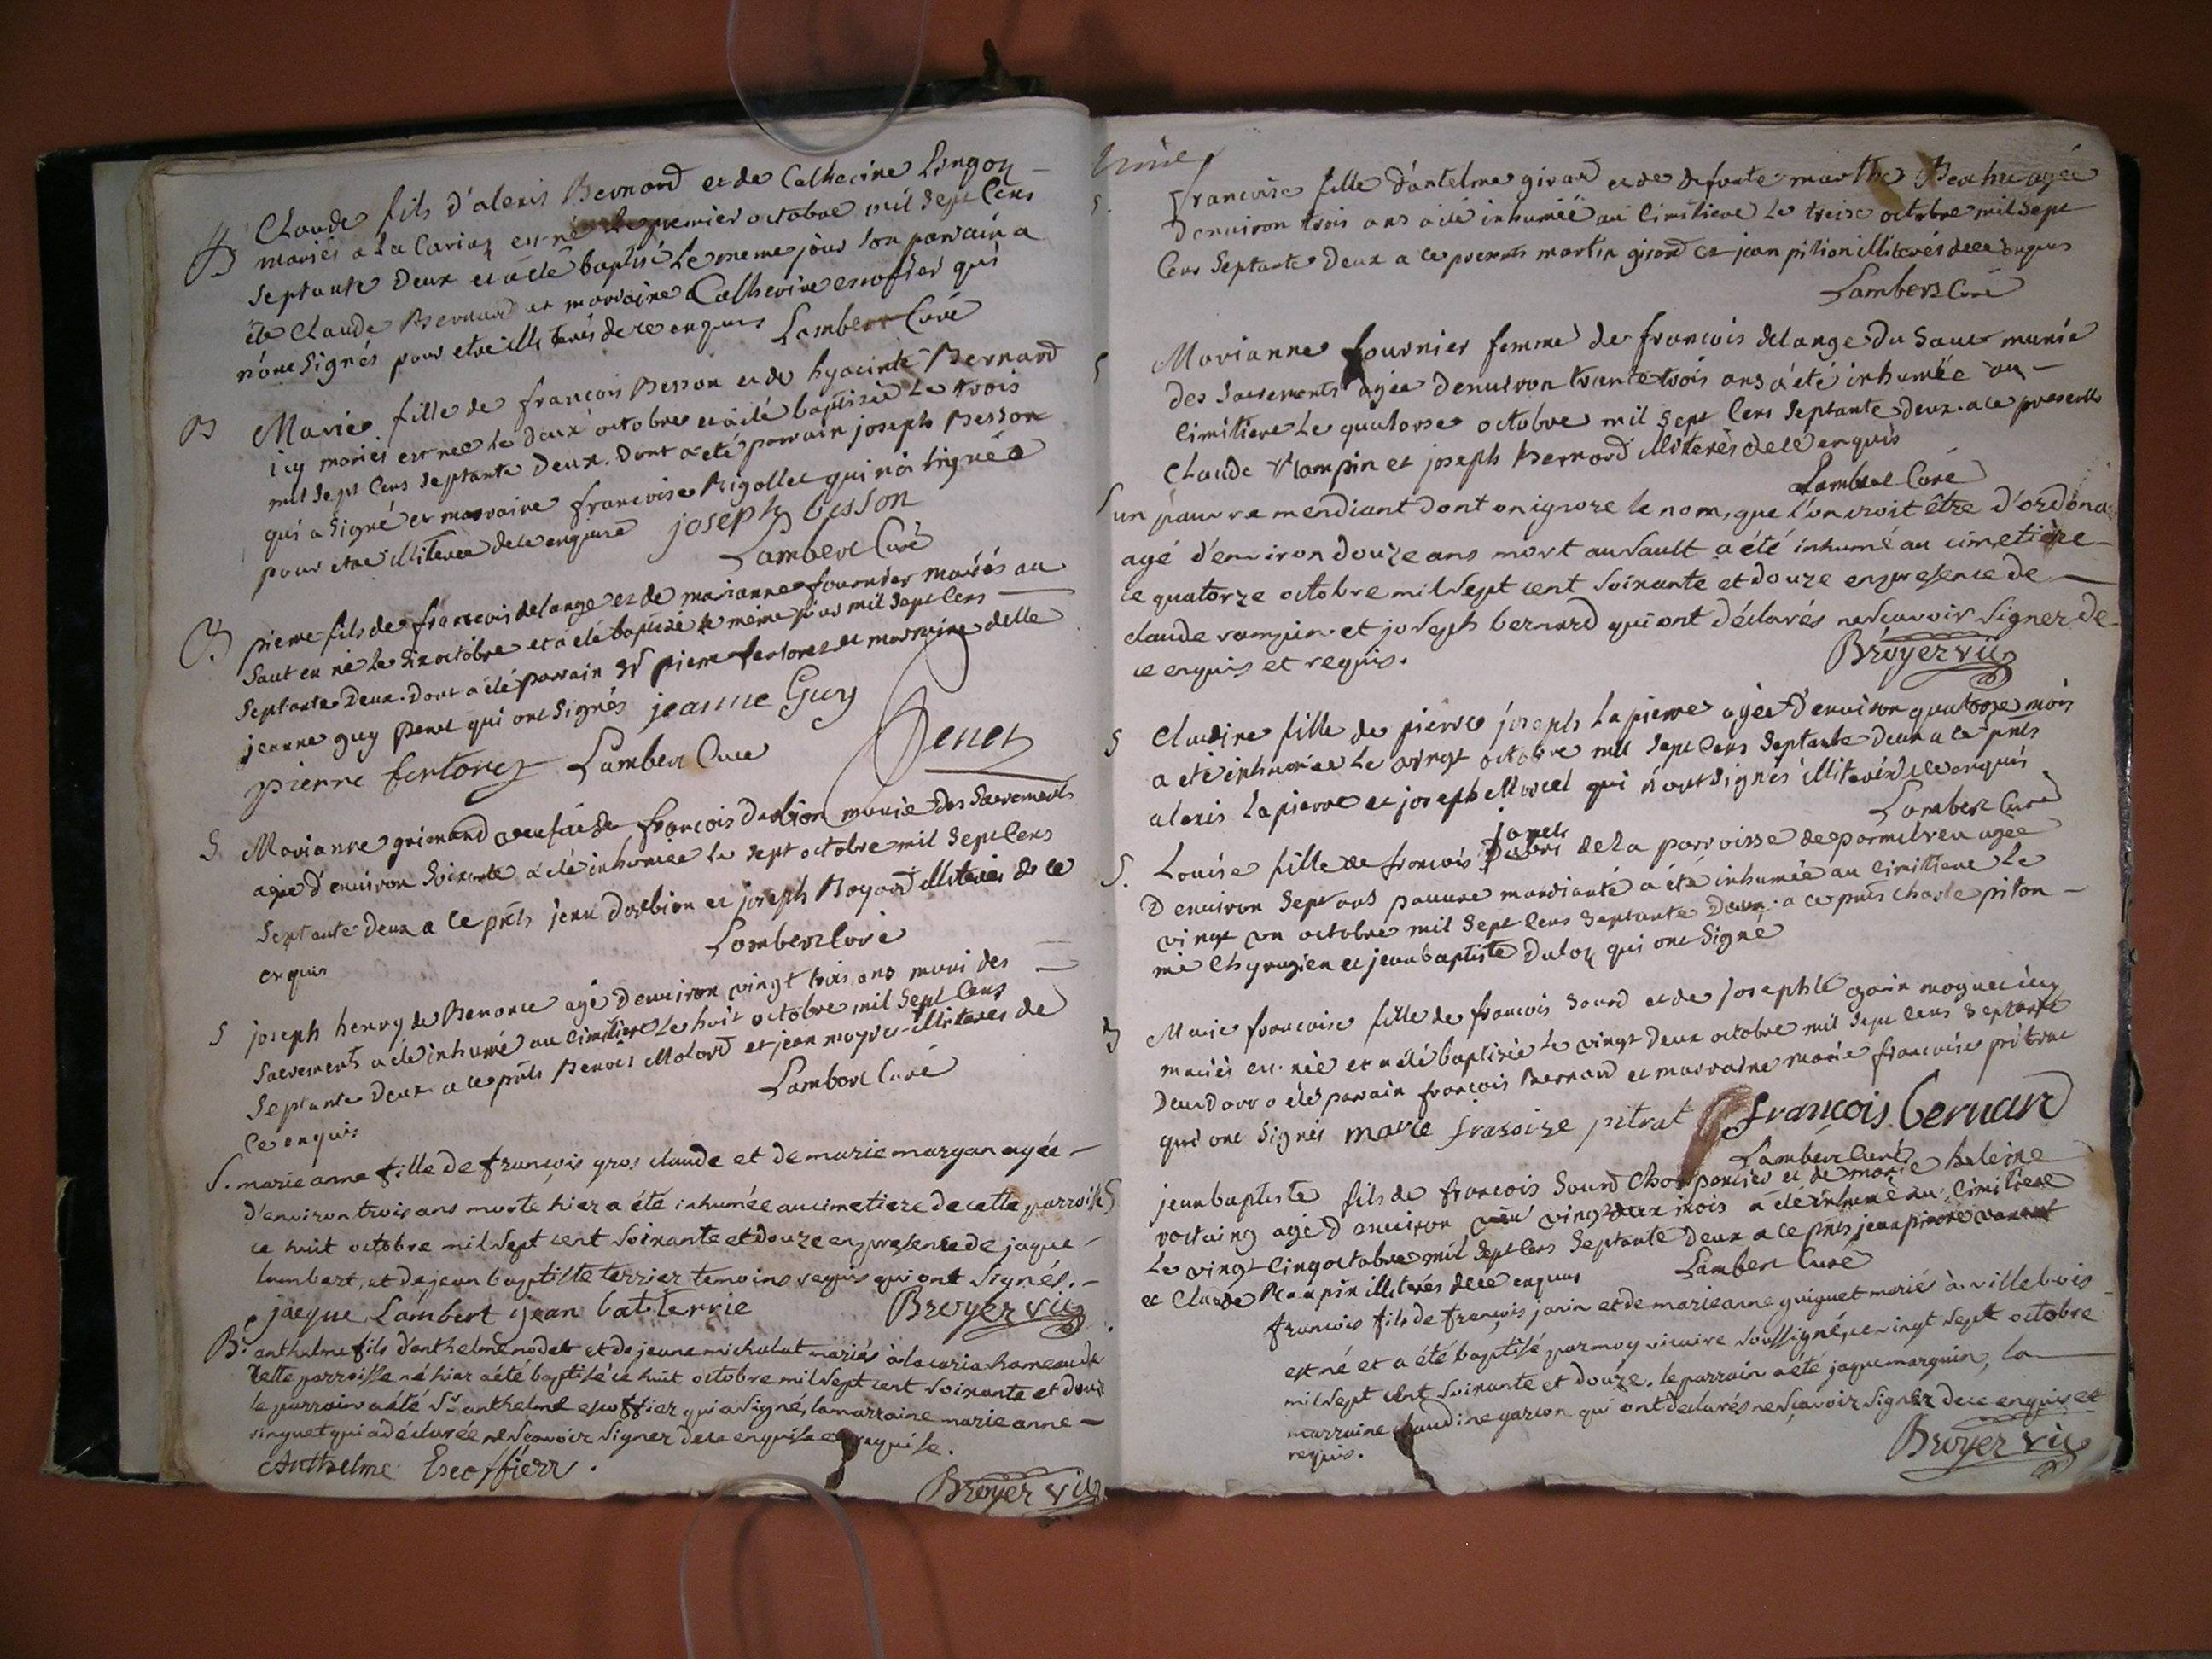 B Claude fils d'alexis Bernard et de Catherine Lingon
mariés a la Cariaz est né le premier octobre mil sept Cens
septante deux et a été baptisé le meme jour son parrain a
été Claude Bernard et marraine Catherine escoffier qui
n'ont signés pour etre illiterés de ce enquis Lambert Curé
B Marie fille de françois Besson et de hyacinte Bernard
icy mariés est née le deux octobre et a été baptisée le trois
mil sept Cens septante deux. Dont a été parrain joseph Besson
qui a signé et marraine francoise Rigollet qui n'a signée
pour etre illiteree de ce enquise joseph besson
Lambert Curé
B pierre fils de francois delange et de marianne fournier mariés au
Saut est né le six octobre et a été baptisé le même jour mil sept Cens
septante Deux. Dont a été parrain Sr pierre et marraine delle
jeanne guy penet qui ont signés jeanne Guy
Penet
pierre Lambert Curé
S Marianne grimand veufve de francois dorbion munie des Sacrements
agée d'environ Soixante a été inhumée le sept octobre mil sept Cens
Septante deux a ce pnts jean Dorbion et joseph Bogard illiterés de ce
enquis
Lambert Curé
S joseph henry de Benonce agé d'environ vingt trois ans muni des
Sacrements a été inhumé au Cimitiere le huit octobre mil sept Cens
Septante deux. a ce pnts Benoit Molard et jean illiteres de
Ce enquis
Lambert Curé
S. marie anne fille de françois gros claude et de marie margan agée
d'environ trois ans morte hier a été inhumée au cimetiere de cette parroisse
ce huit octobre mil sept cent soixante et douze en presence de jaque
lambert, et de jean baptiste terrier temoins requis qui ont signés.
jacque Lambert jean bat terrie Broyer vic
B. anthelme fils d'anthelme nodet et de jeanne michalat mariés à la caria hameau de
cette parroisse né hier a été baptisé ce huit octobre mil sept cent soixante et douze
le parrain a été Sr anthelme escoffier qui a signé, la marraine marie anne
ringuet qui a déclarée ne sçavoir signer de ce enquise et requise.
Anthelme Escoffier.
Broyer vic
S. francoise fille d'antelme girard et de defunte marthe agée
d'environ trois ans a été inhumée au Cimitiere le treize octobre mil sept
Cens Septante Deux a ce presents martin girard et jean pition illiterés de ce enquis
Lambert Curé
S Marianne fournier femme de francois delange du Saut munie
des Sacrements agée d'environ trante trois ans a été inhumée au
Cimitiere le quatorze octobre mil sept Cens Septante Deux. a ce presents
Claude Rampin et joseph Bernard illiterés de ce enquis
Lambert Curé
S un pauvre mendiant dont on ignore le nom, que l'on croit être d'ordona
agé d'environ douze ans mort au sault a été inhumé au cimetière
ce quatorze octobre mil sept cent soixante et douze en presence de
claude rampin et joseph bernard qui ont déclarés ne sçavoir signer de
ce enquis et requis. Broyer vic
S Claudine fille de pierre joseph Lapierre agée d'environ quatorze mois
a été inhumée le vingt octobre mil sept Cens Septante deux a ce pnts
alexis Lapierre et joseph Marcel qui n'ont signés illiterés de ce enquis
Lambert Curé
S. Louise fille de francois janet de la parroisse de parmilieu agée
D'environ Sept ans pauvre mandiante a été inhumée au Cimitiere le
vingt un octobre mil sept Cens septante Deux. a ce pnts Charle piton
me Chyrugien et jean baptiste Duloz qui ont signé
B Marie francoise fille de francois Sourd et de josephte gain icy
mariés est née et a été baptisée le vingt deux octobre mil sept Cens septante
Deux dont a été parrain françois Bernard et marraine marie francoise pitrat
qui ont signés marie frasoise pitrat françois bernard
Lambert Curé
S jean baptiste fils de francois Sourd Charpentier et de marie heleine
agé d'environ vingt deux mois a été inhumé au Cimitiere
le vingt Cinq octobre mil sept Cens Septante Deux a ce pnts jean pierre
et Claude Rampin illiterés de ce enquis Lambert Curé
francois fils de françois janin et de marie anne guiguet mariés à villebois
est né et a été baptisé par moy vicaire soussigné, ce vingt sept octobre
mil sept cent soixante et douze. le parrain a été jaque marguin, la
marraine claudine garcon qui ont déclarés ne sçavoir signer de ce enquis et
requis. Broyer vic